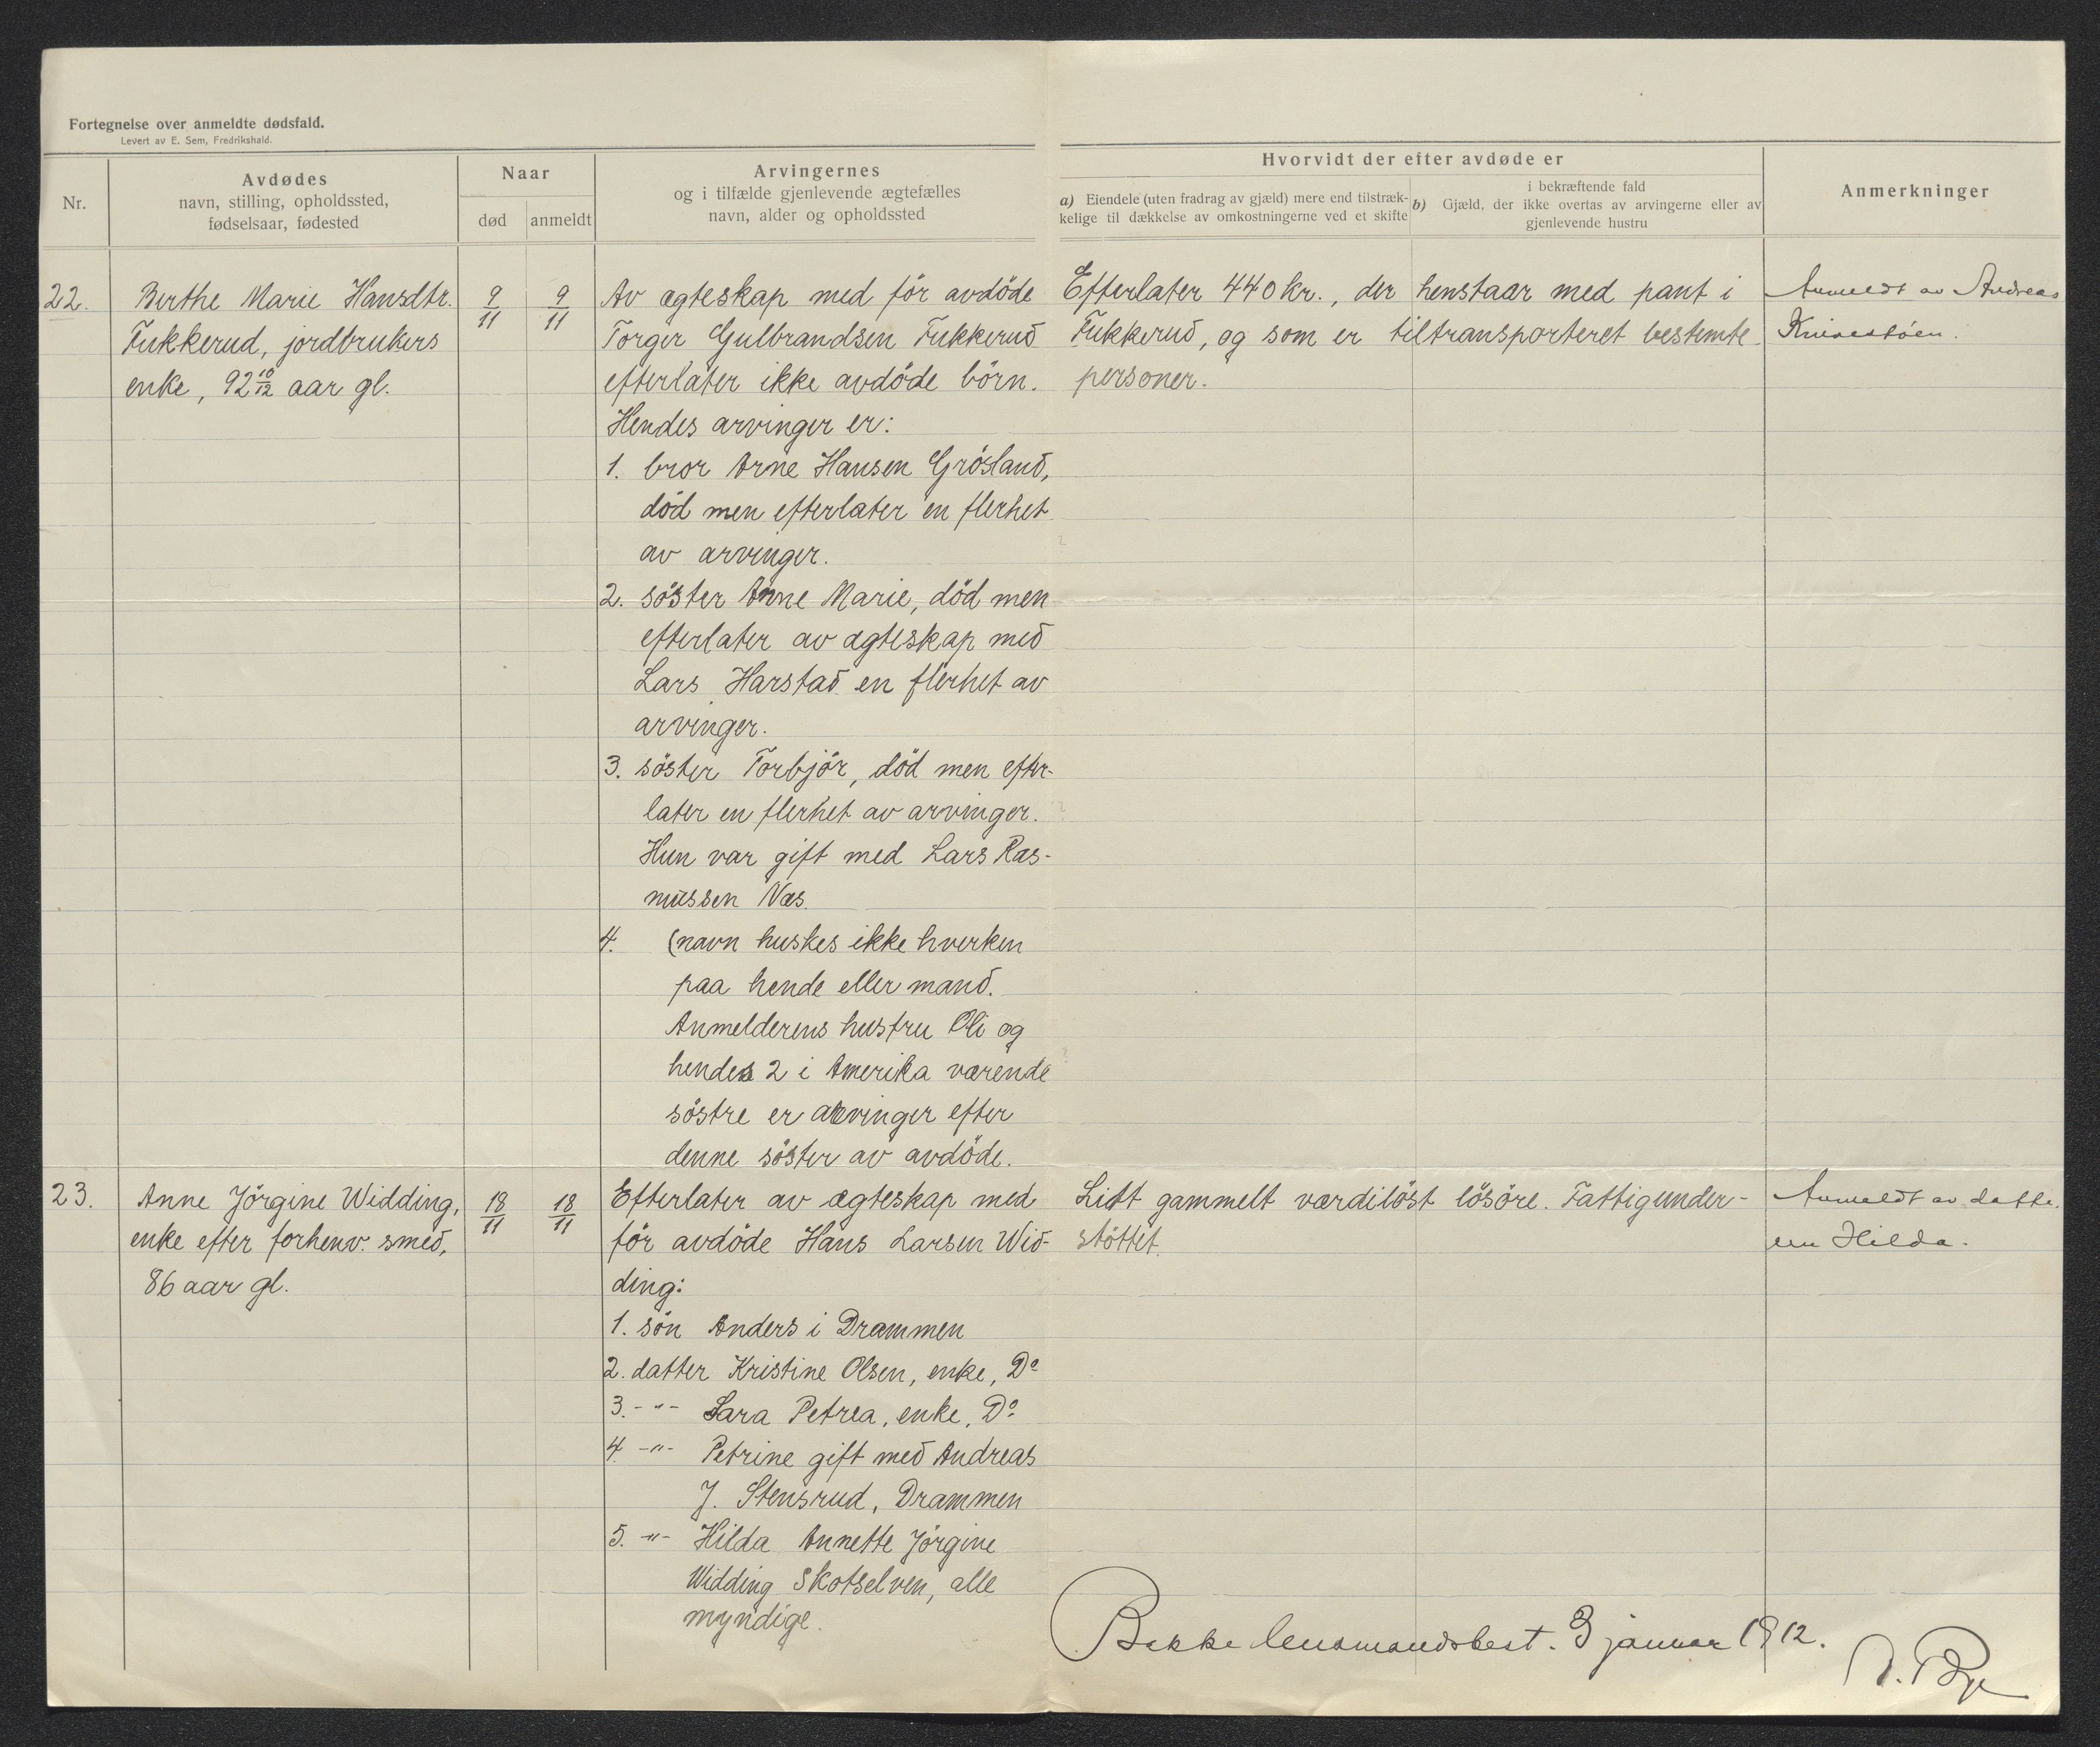 Fortegnelse over anmeldte dødsfald.
Levert av E. Sem, Fredrikshald.
Nr.
Avdødes
navn, stilling, opholdssted,
fødselsaar, fødested
Naar
død
anmeldt
Arvingernes
og i tilfælde gjenlevende ægtefælles
navn, alder og opholdssted
Hvorvidt der efter avdøde er
a) Eiendele (uten fradrag av gjæld) mere end tilstræk-
kelige til dækkelse av omkostningerne ved et skifte
i bekræftende fald
b) Gjæld, der ikke overtas av arvingerne eller av
gjenlevende hustru
Anmerkninger
22.
Berthe Marie Hansdtr.
Fukkerud, jordbrukers
enke, 92 10/12 aar gl.
9/11
9/11
Av ægteskap med för avdöde
Torger Gulbrandsen Fukkerud
efterlater ikke avdöde börn.
Hendes arvinger er:
1. bror Arne Hansen Grösland,
död men efterlater en flerhet
av arvinger.
2. söster Anne Marie, död men
efterlater av ægteskap med
Lars Harstad en flerhet av
arvinger.
3. söster Torbjör, död men efter-
later en flerhet av arvinger.
Hun var gift med Lars Ras-
mussen Næs.
4. (navn huskes ikke hverken
paa hende eller mand.
Anmelderens hustru Oli og
hendes 2 i Amerika værende
söstre er arvinger efter
denne söster av avdöde.
Efterlater 440 kr., der henstaar med pant i
Fukkerud, og som er tiltransporteret bestemte
personer.
Anmeldt av Andreas
Knivestöen.
23.
Anne Jörgine Widding,
enke efter forhenv. smed,
86 aar gl.
18/11
18/11
Efterlater av ægteskap med
för avdöde Hans Larsen Wid-
ding:
1. sön Anders i Drammen
2. datter Kristine Olsen, enke, Do
3. -"- Sara Petrea, enke, Do
4. -"- Petrine gift med Andreas
J. Stensrud, Drammen
5. -"- Hilda Annette Jörgine
Widding Skotselven, alle
myndige.
Litt gammelt værdilöst lösöre. Fattigunder-
stöttet.
Anmeldt av datte.
ren Hilda.
Bakke lensmandsbest. 3 januar 1912.